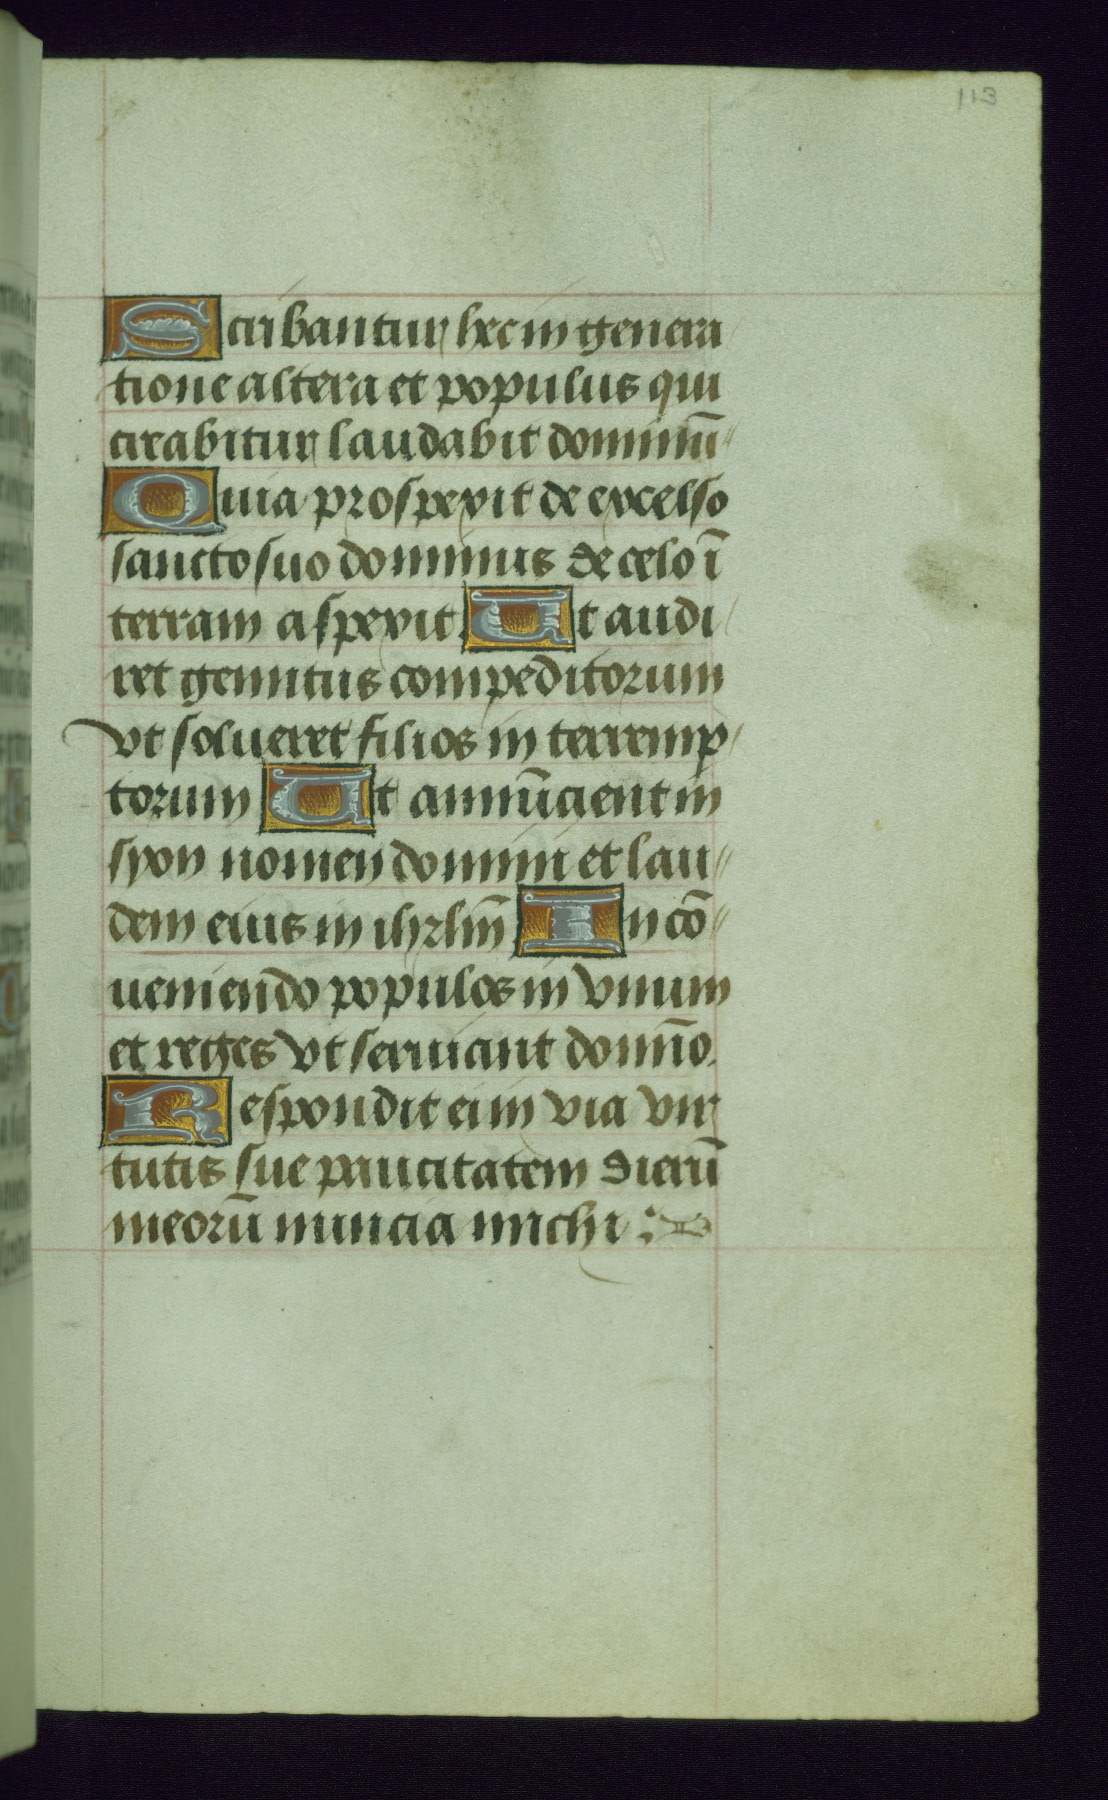 113
Scribantur hec in genera
tione altera et populus qui
creabitur laudabit dominū
Quia prospexit de excelso
sancto suo dominus de celo ī
terram aspexit Ut audi
ret gemitus compeditorum
vt solueret filios interremp
torum Ut annūcient in
syon nomen domini et lau
dem eius in ihrlm̄ In cō
ueniendo populos in vnum
et reges vt seruiant domīo.
Respondit ei in via vir
tutis sue paucitatem dierū
meorū nuncia michi :